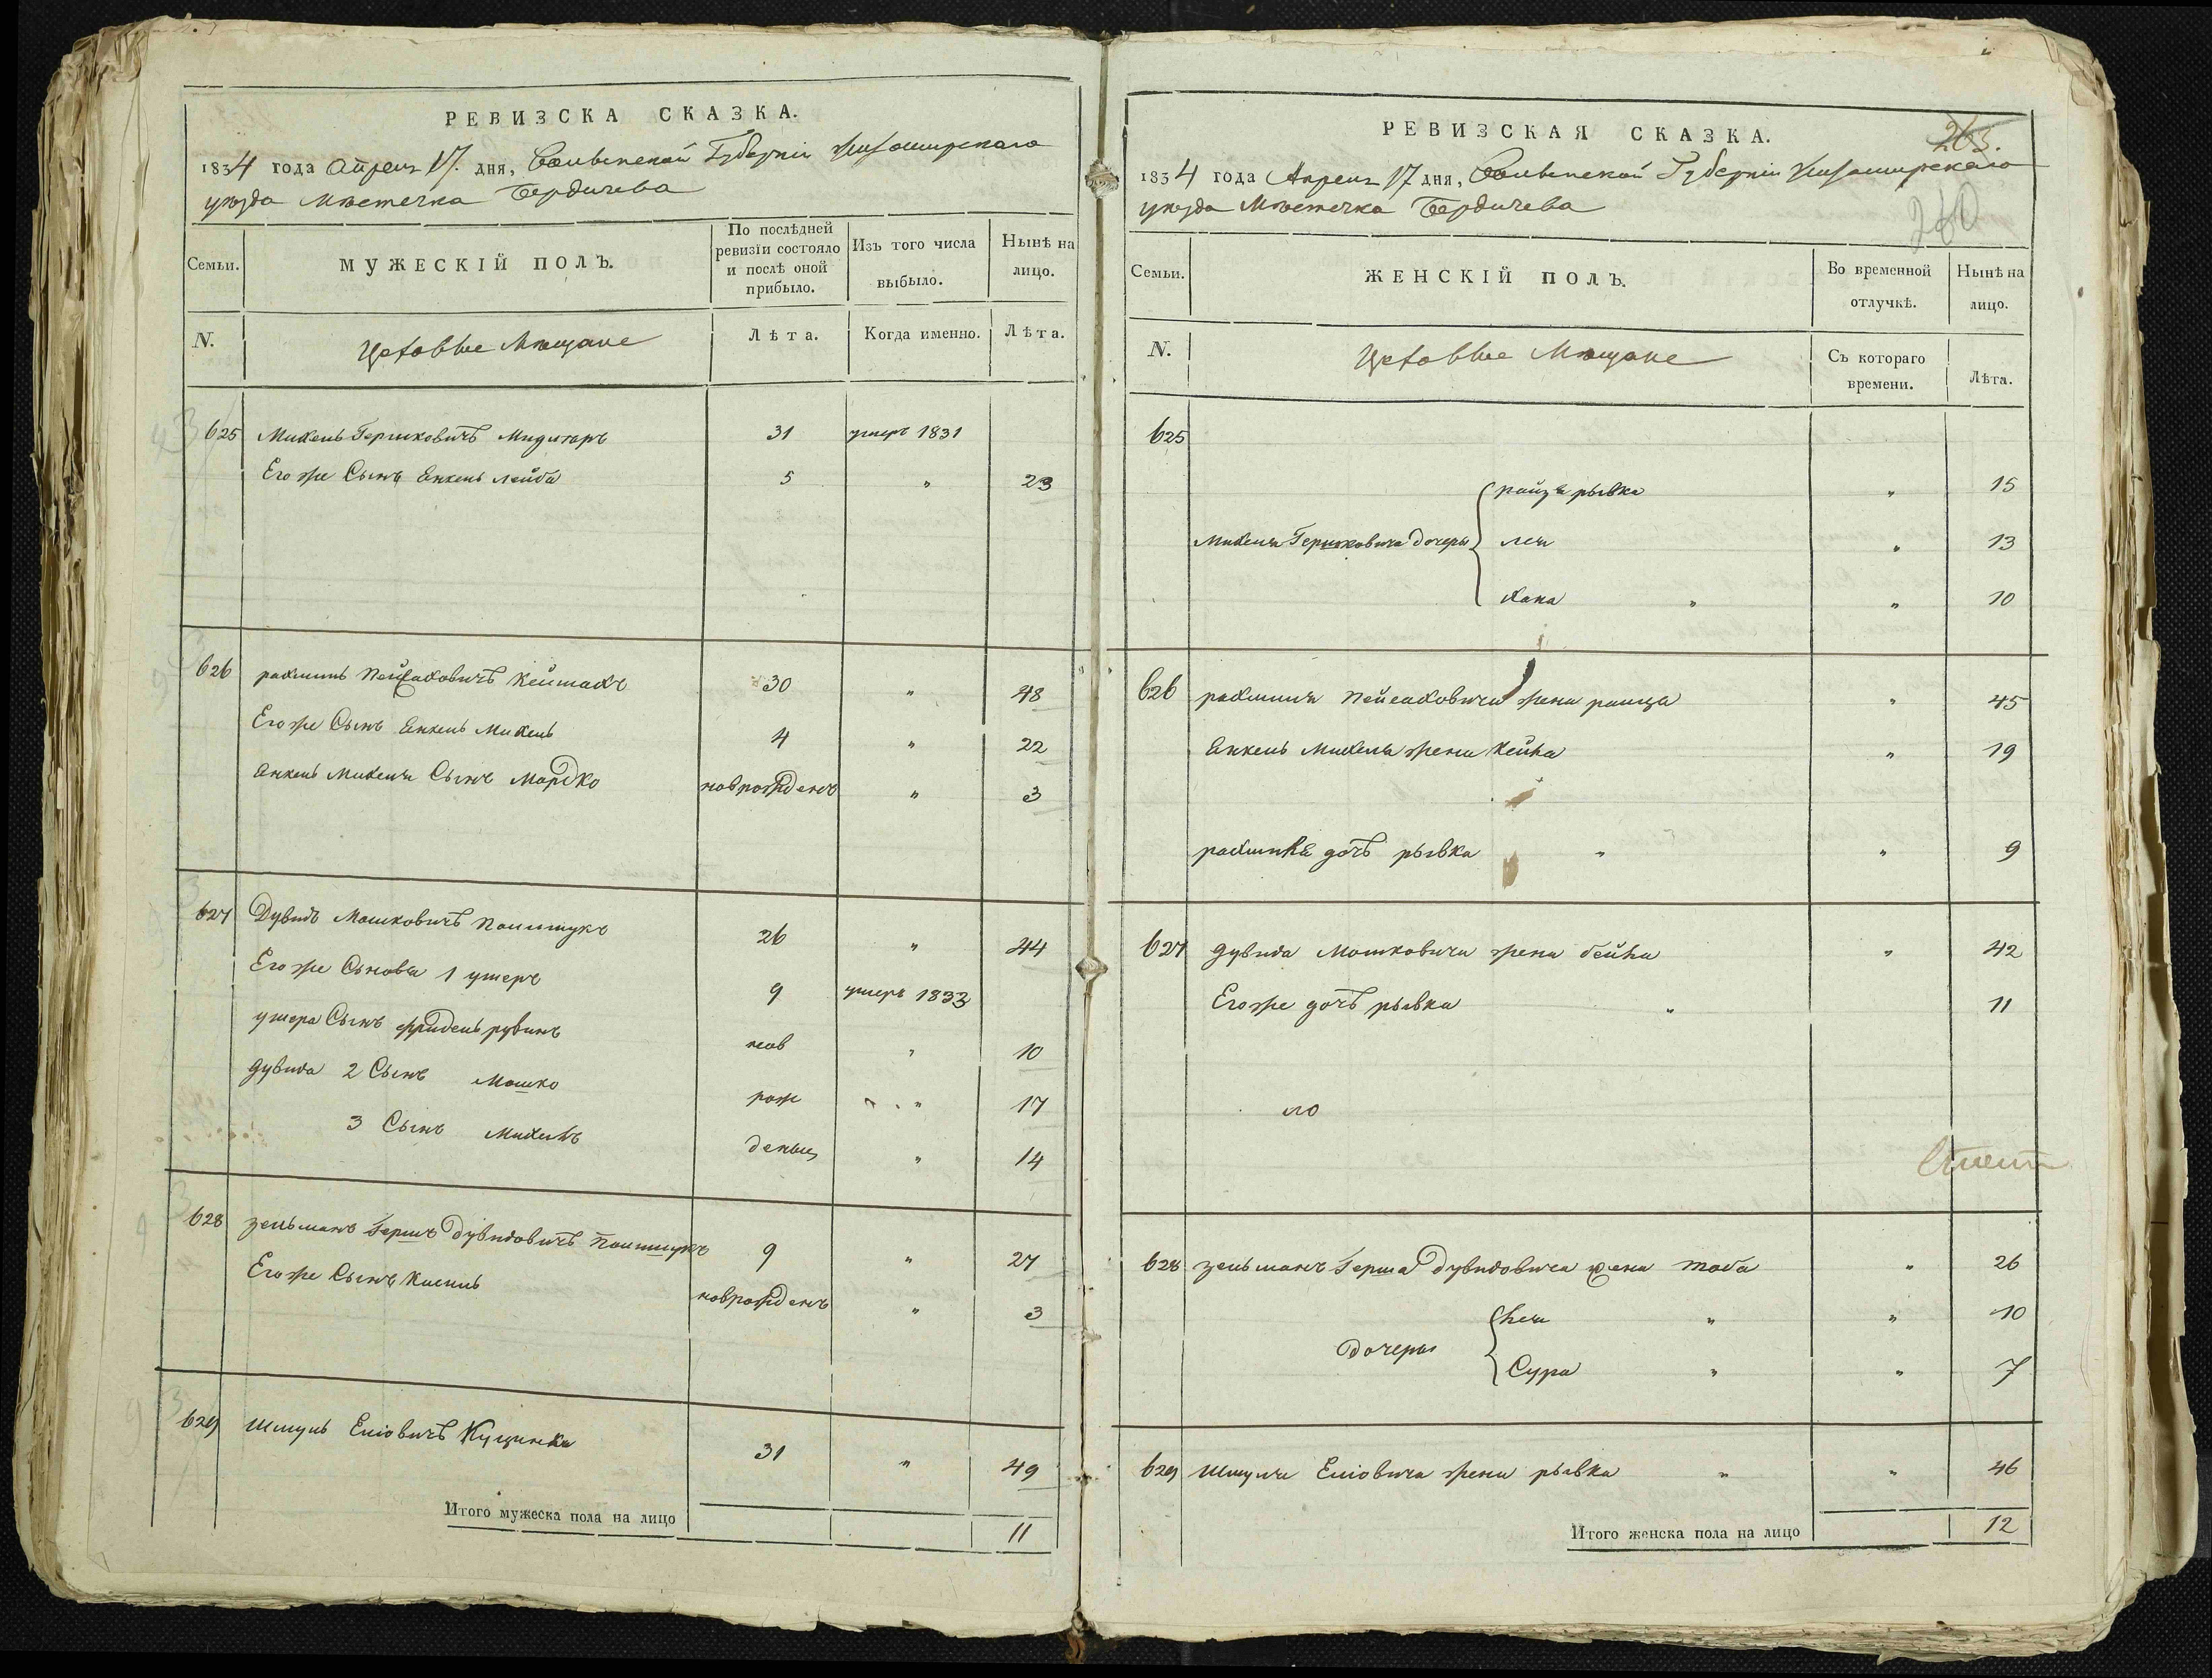 РЕВИЗСКА СКАЗКА.
1834 года Апреля 17. дня, Волынской Губерніи Житомирскаго
уѣзда Мѣстечка Бердичева
Семьи.
МУЖЕСКІЙ ПОЛЪ.
По послѣдней ревизіи состояло и послѣ оной прибыло.
Изъ того числа выбыло.
Нынѣ на лицо.
N.
Цеховые Мѣщане
Лѣта.
Когда именно.
Лѣта.
625 Михель Гершковичъ 31 умеръ 1831
Его же Сынъ Янкель Лейба 5 " 23
626 рахмиль Пейсаховичъ 30 " 48
Его же Сынъ Янкель Михель 4 " 22
Янкель Михеля Сынъ Мордко новрожденъ " 3
627 Дувидъ Мошковичъ Полищукъ 26 " 44
Его же Сыновья 1 умеръ 9 умеръ 1833
умера Сынъ фридель рувинъ нов " 10
дувида 2 Сынъ Мошко рож " 17
3 Сынъ Михель денны " 14
628 зельманъ Гершъ Дувидовичъ Полищукъ 9 " 27
Его же Сынъ Кисиль новрожденъ " 3
629 Шмуль Еліовичъ 31 " 49
Итого мужеска пола на лицо 11
РЕВИЗСКАЯ СКАЗКА.
263.
1834 года Апреля 17 дня, Волынской Губерніи Житомирскаго
240
уѣзда Мѣстечка Бердичева
Семьи.
ЖЕНСКІЙ ПОЛЪ.
Во временной отлучкѣ.
Нынѣ на лицо.
N.
Цеховые Мѣщане
Съ котораго времени.
Лѣта.
625
райзя рывка " 15
Михеля Гершковича дочеры лея " 13
хана " " 10
626 рахмиля Пейсаховича жена раица " 45
Янкель Михеля жена Кейла " 19
рахмиля дочъ рывка " " 9
627 дувида Мошковича жена бейла " 42
Его же дочъ рывка " 11
628 зельманъ Герша Дувидовича жена Тоба " 26
лея " " 10
Дочеры
Сура " " 7
629 Шмуля Еліовича жена рывка " " 46
Итого женска пола на лицо 12